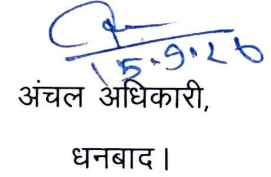 15.9.26
अंचल अधिकारी,
धनबाद।